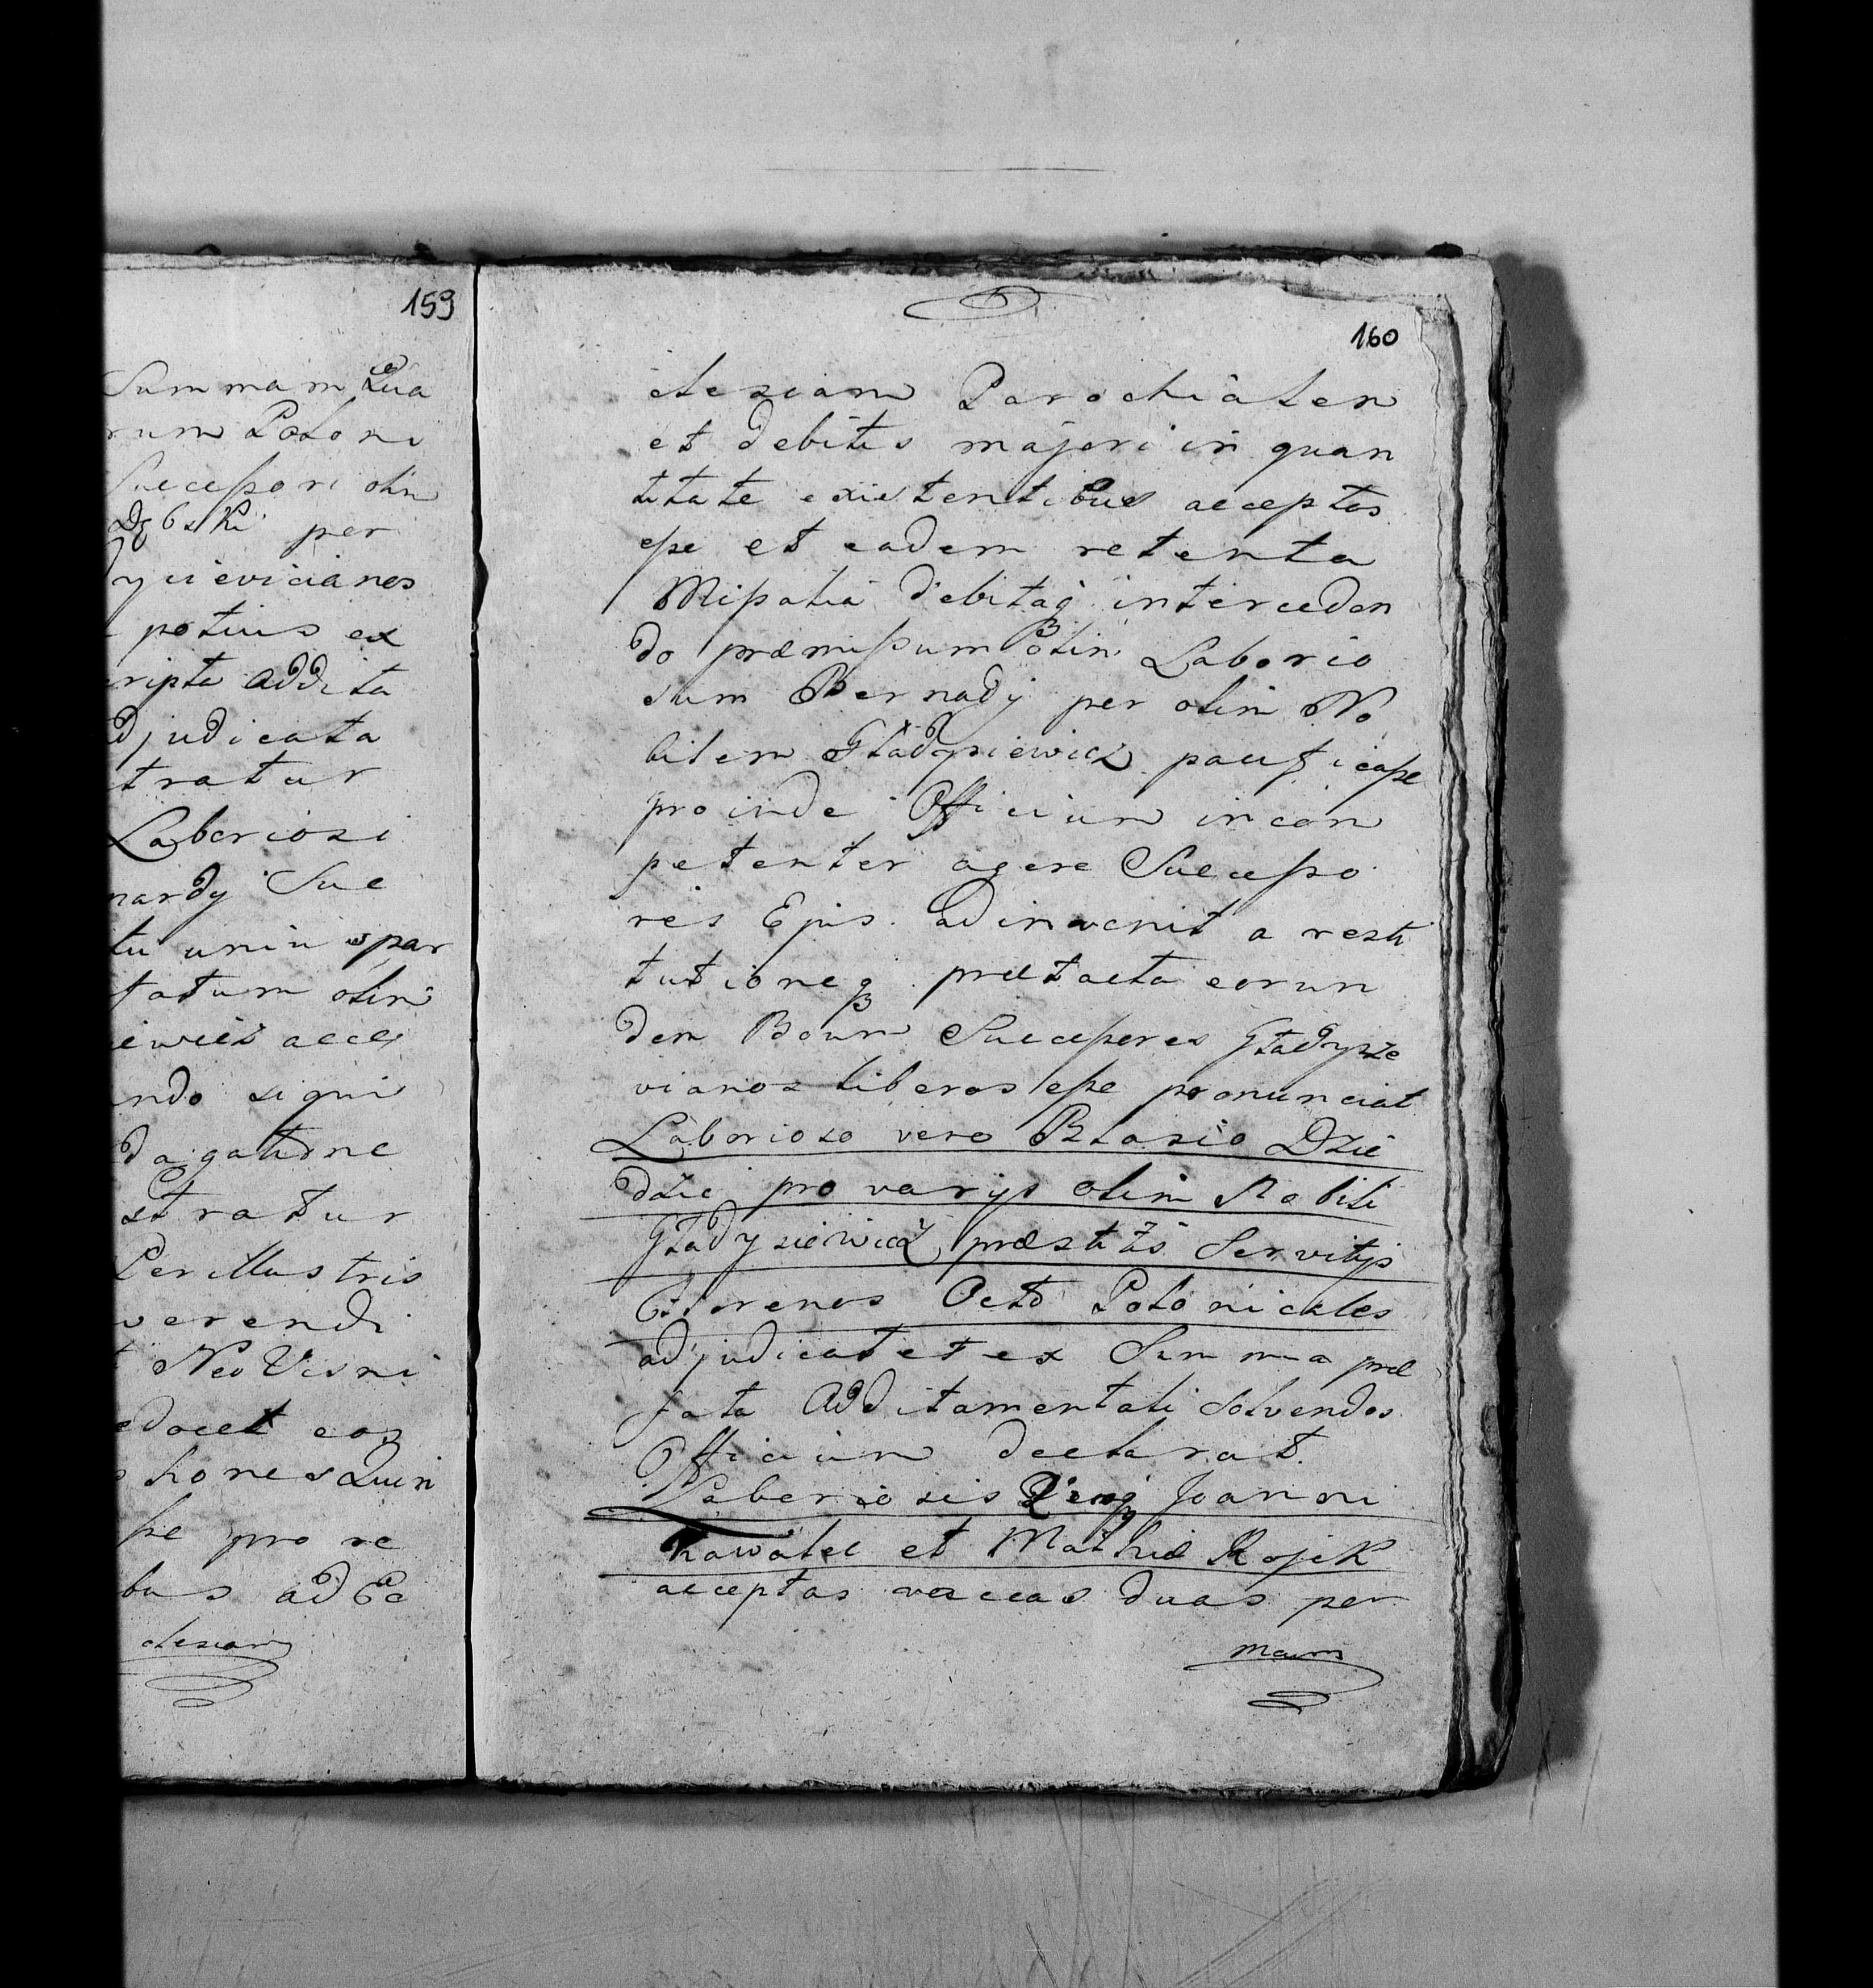 159
Summam Qua
rum Poloni
Successori olim
Dębski per
yciewicianos
potius ex
cripta addita
djudicata
tratur
Laboriosi
nardy Suc
tu unius par
tatum olim
iewicz acce
ndo siqui
dagatione
stratur
Perillustris
verendi
Neo Visni
edocet eos
phones Quin
sse pro re
bus ad Ec
clesiam
160
clesiam Parochialem
et debitis majori in quan
titate existentibus acceptos
esse et eadem retenta
Missalia debitaq interceden
do præmissum olim Laborio
sum Bernady per olim No
bilem Gładysiewicz pacificasse
proinde Officium incom
petenter agere Successo
res Ejus adinvenit a resti
tutioneq prætacta eorun
dem Boum Successores Gładysze
vianos liberos esse pronunciat
Laborioso vero Blasio Dzie
dzic pro varijs olim Nobili
Gładysiewicz præstitis Servitijs
Florenos Octo Polonicales
adjudicat et ex Summa præ
fata Additamentali solvendos
Officium declarat.
Laboriosis Joanni
Kawalec et Mathiæ Rojek
acceptas vaccas duas per
mam